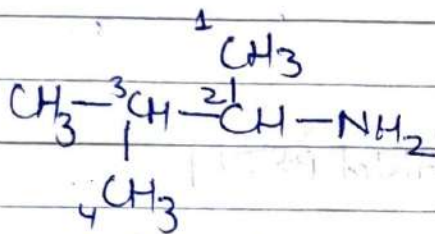 1
CH3
CH3—3CH—2CH—NH2
4CH3